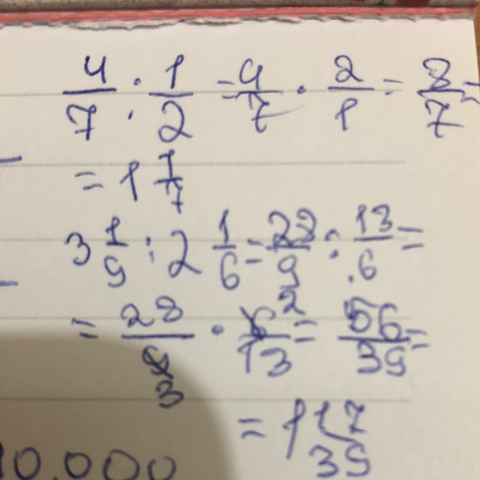 4/7 : 1/2 = 4/7 · 2/1 = 8/7 =
= 1 1/7
3 1/9 : 2 1/6 = 28/9 : 13/6 =
= 28/9 3 · 6 2/13 = 56/39 =
= 1 17/39
10.000